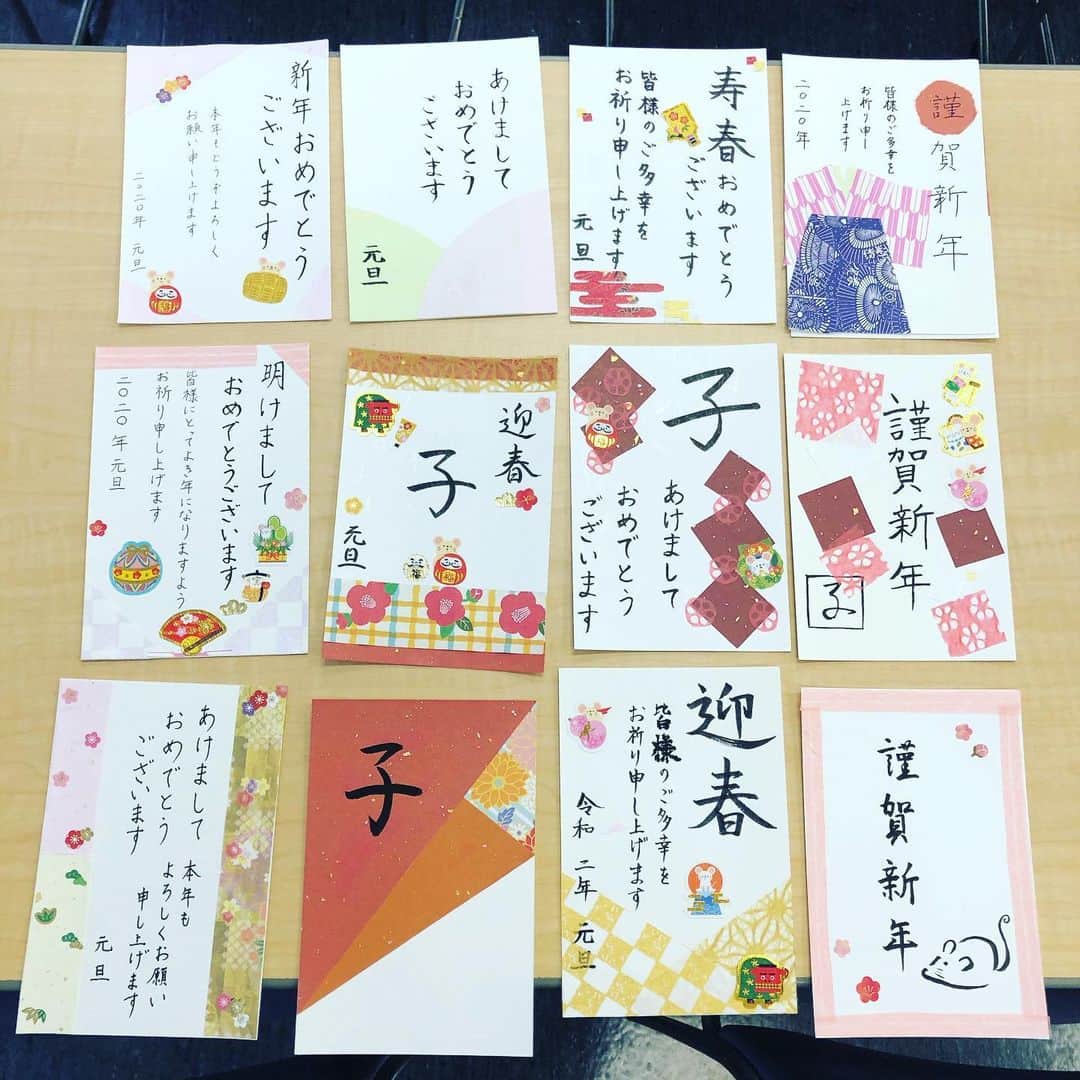 新年おめでとう
ございます
本年もどうぞよろしく
お願い申し上げます
二〇二〇年 元旦
あけまして
おめでとう
ございます
元旦
寿春おめでとう
ございます
皆様のご多幸を
お祈り申し上げます
元旦
謹賀新年
皆様のご多幸を
お祈り申し
上げます
二〇二〇年
明けまして
おめでとうございます
皆様にとってよき年になりますよう
お祈り申し上げます
二〇二〇年 元旦
迎春
子
元旦
福
子
あけまして
おめでとう
ございます
謹賀新年
子
あけまして
おめでとう
ございます
本年も
よろしくお願い
申し上げます
元旦
子
迎春
皆様のご多幸を
お祈り申し上げます
令和二年 元旦
謹賀新年